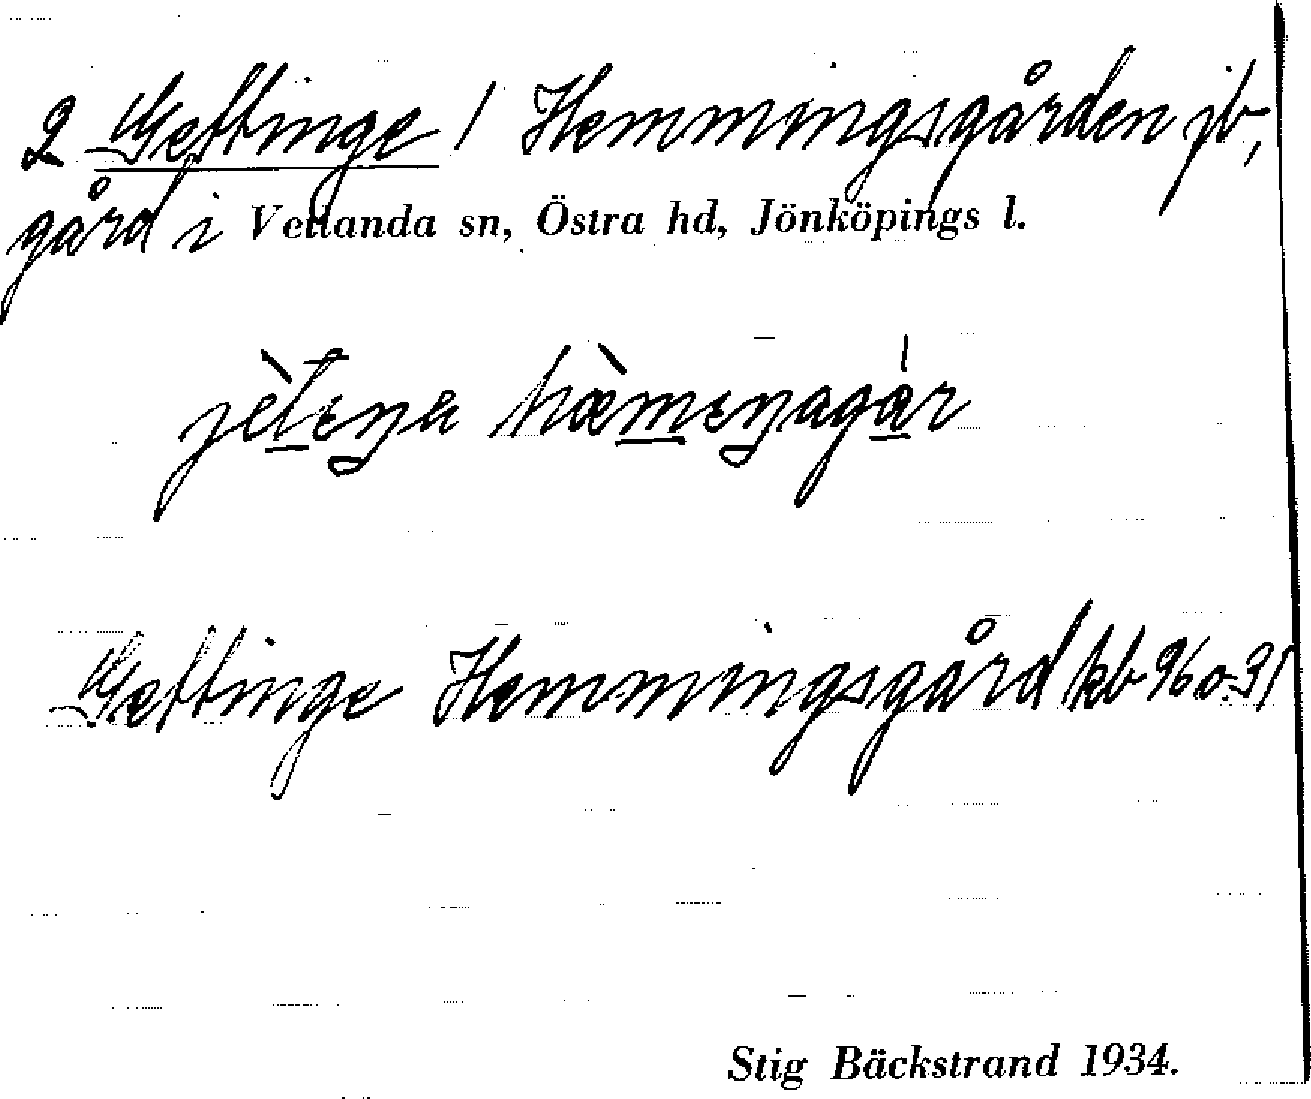 2 Gettinge / Hemmingsgården jb,
gård i Vetlanda sn, Östra hd, Jönköpings l.
Gettinge Hemmingsgård kb 96 o. 31
Stig Bäckstrand 1934.